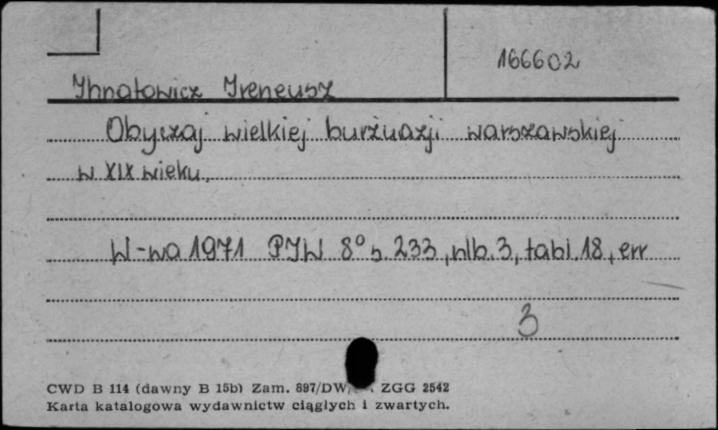 166602
Ihnatowicz Ireneusz
Obyczaj wielkiej burżuazji warszawskiej
w XIX wieku.
W-wa 1971 PIW 8° s. 233, nlb. 3, tabl. 18, err
3
CWD B 114 (dawny B 15b) Zam. 897/DW/ ZGG 2542
Karta katalogowa wydawnictw ciągłych i zwartych.